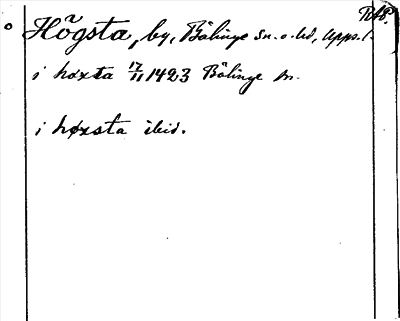 Högsta, by, Bälinge sn. o. hd, Upps. l.
i høxta 17/11 1423 Bälinge sn.
i høxsta ibid.